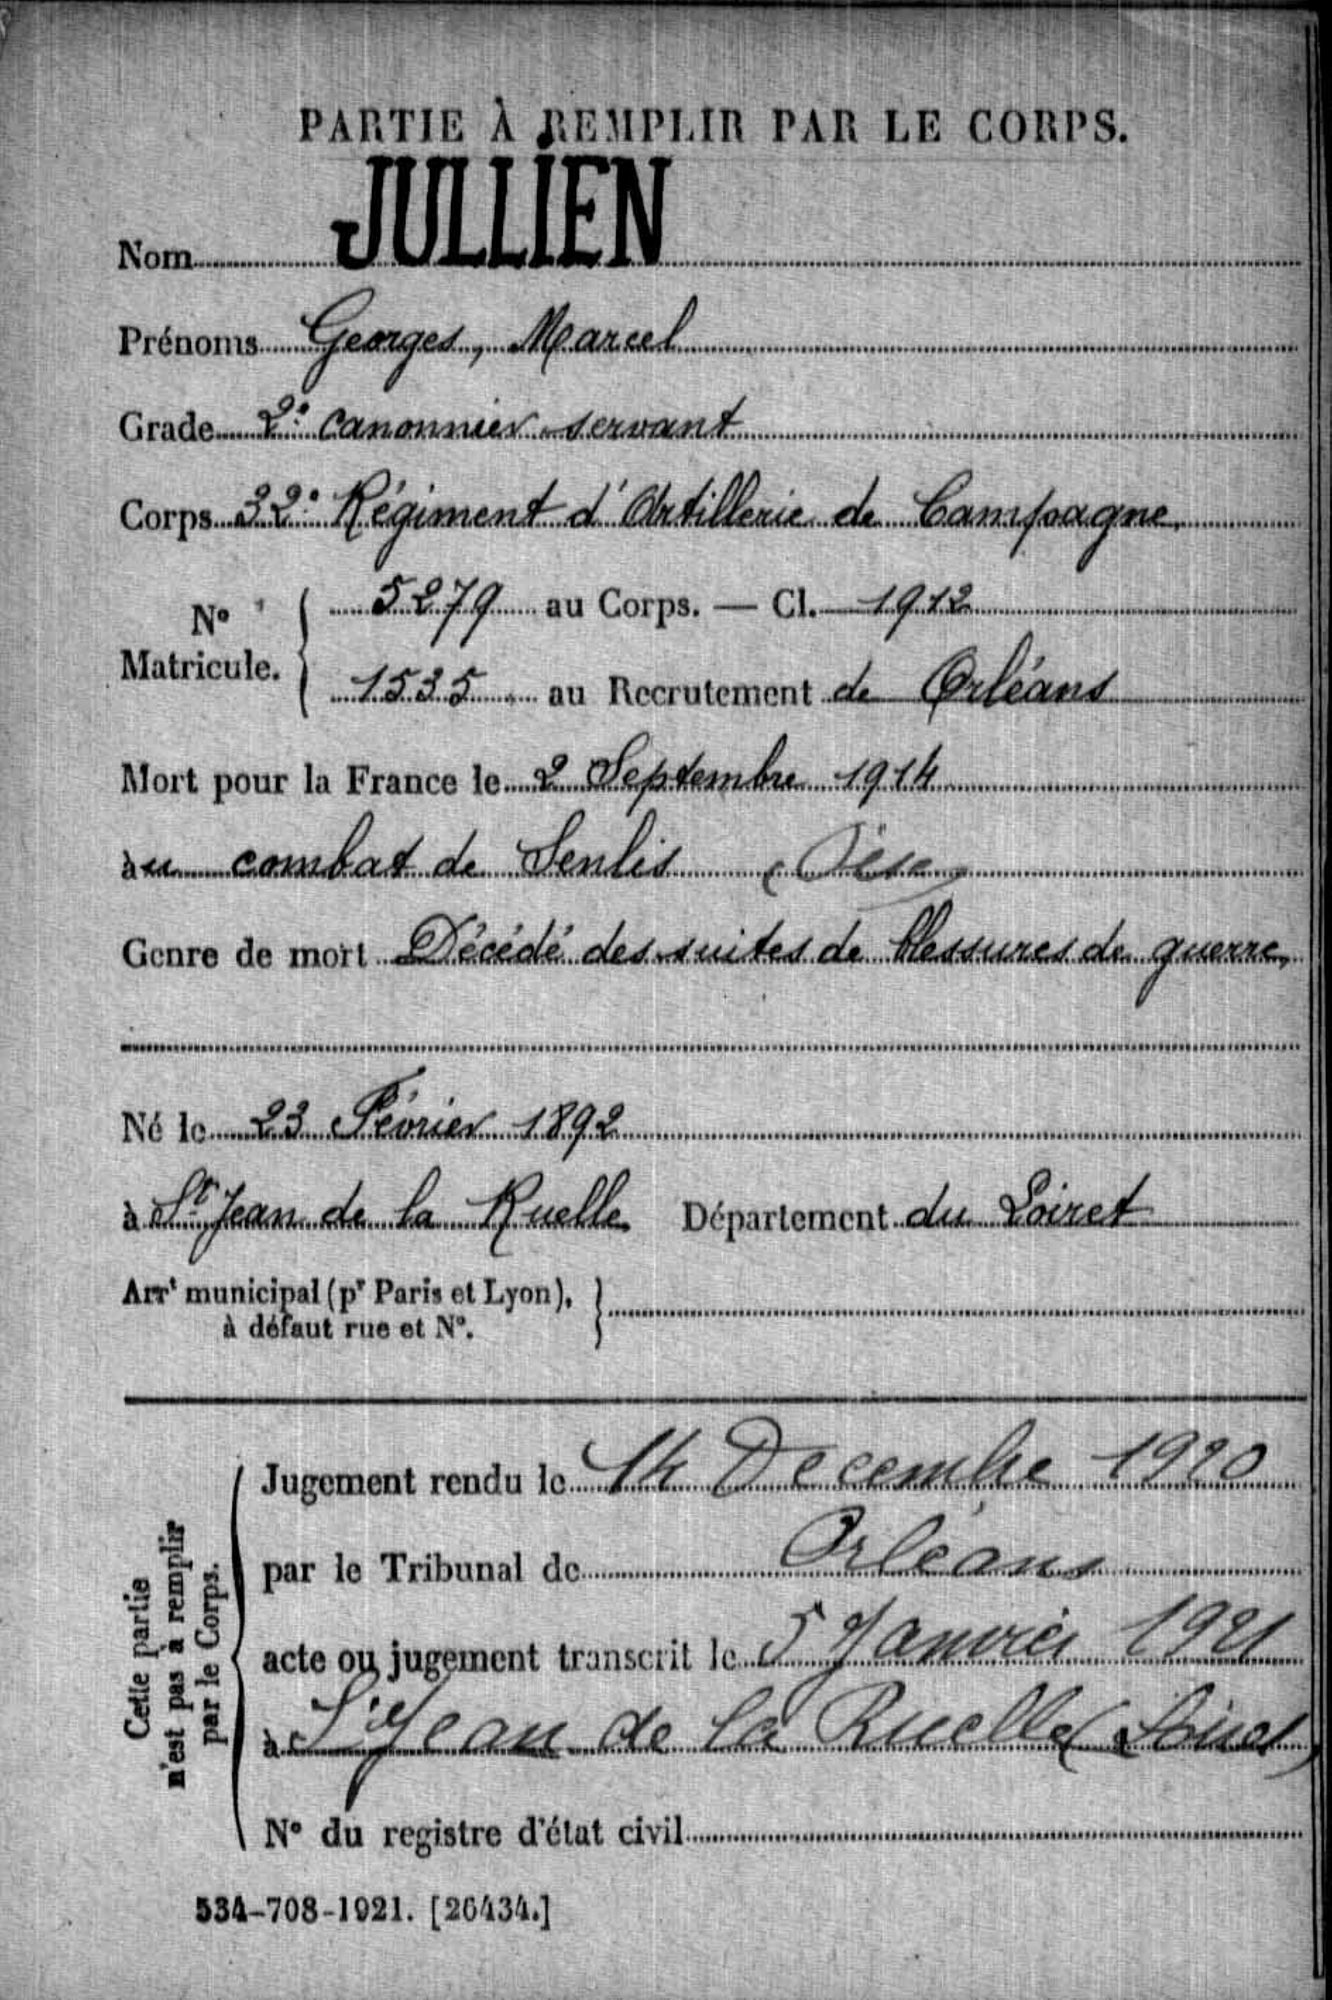 PARTIE À REMPLIR PAR LE CORPS.
Nom JULLIEN
Prénoms Georges, Marcel
Grade 2e canonnier servant
Corps 32e Régiment d'Artillerie de Campagne
No Matricule. { 5279 au Corps. — Cl. 1912
1535 au Recrutement de Orléans
Mort pour la France le 2 Septembre 1914
àu combat de Senlis (Oise)
Genre de mort Décédé des suites de blessures de guerre
Né le 23 Février 1892
à St Jean de la Ruelle Département du Loiret
Arrt municipal (pr Paris et Lyon), }
à défaut rue et No.
Cette partie
n'est pas à remplir
par le Corps.
Jugement rendu le 14 Decembre 1920
par le Tribunal de Orléans
acte ou jugement transcrit le 5 Janvier 1921
à St Jean de la Ruelle (Loiret)
No du registre d'état civil
534-708-1921. [26434.]